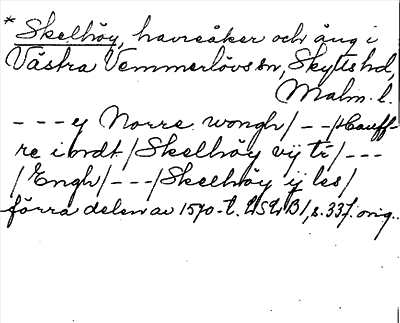 * Skelhöy, havreåker och äng i
Västra Vemmerlövs sn, Skytts hd,
Malm. l.
---ej Norre wongh/--/Hauff-
re i ordt/Skelhöy vij tr/---
/Engh/---/Skelhöy ij les/
förra delen av 1570-t. LSLB1, s. 337. orig.